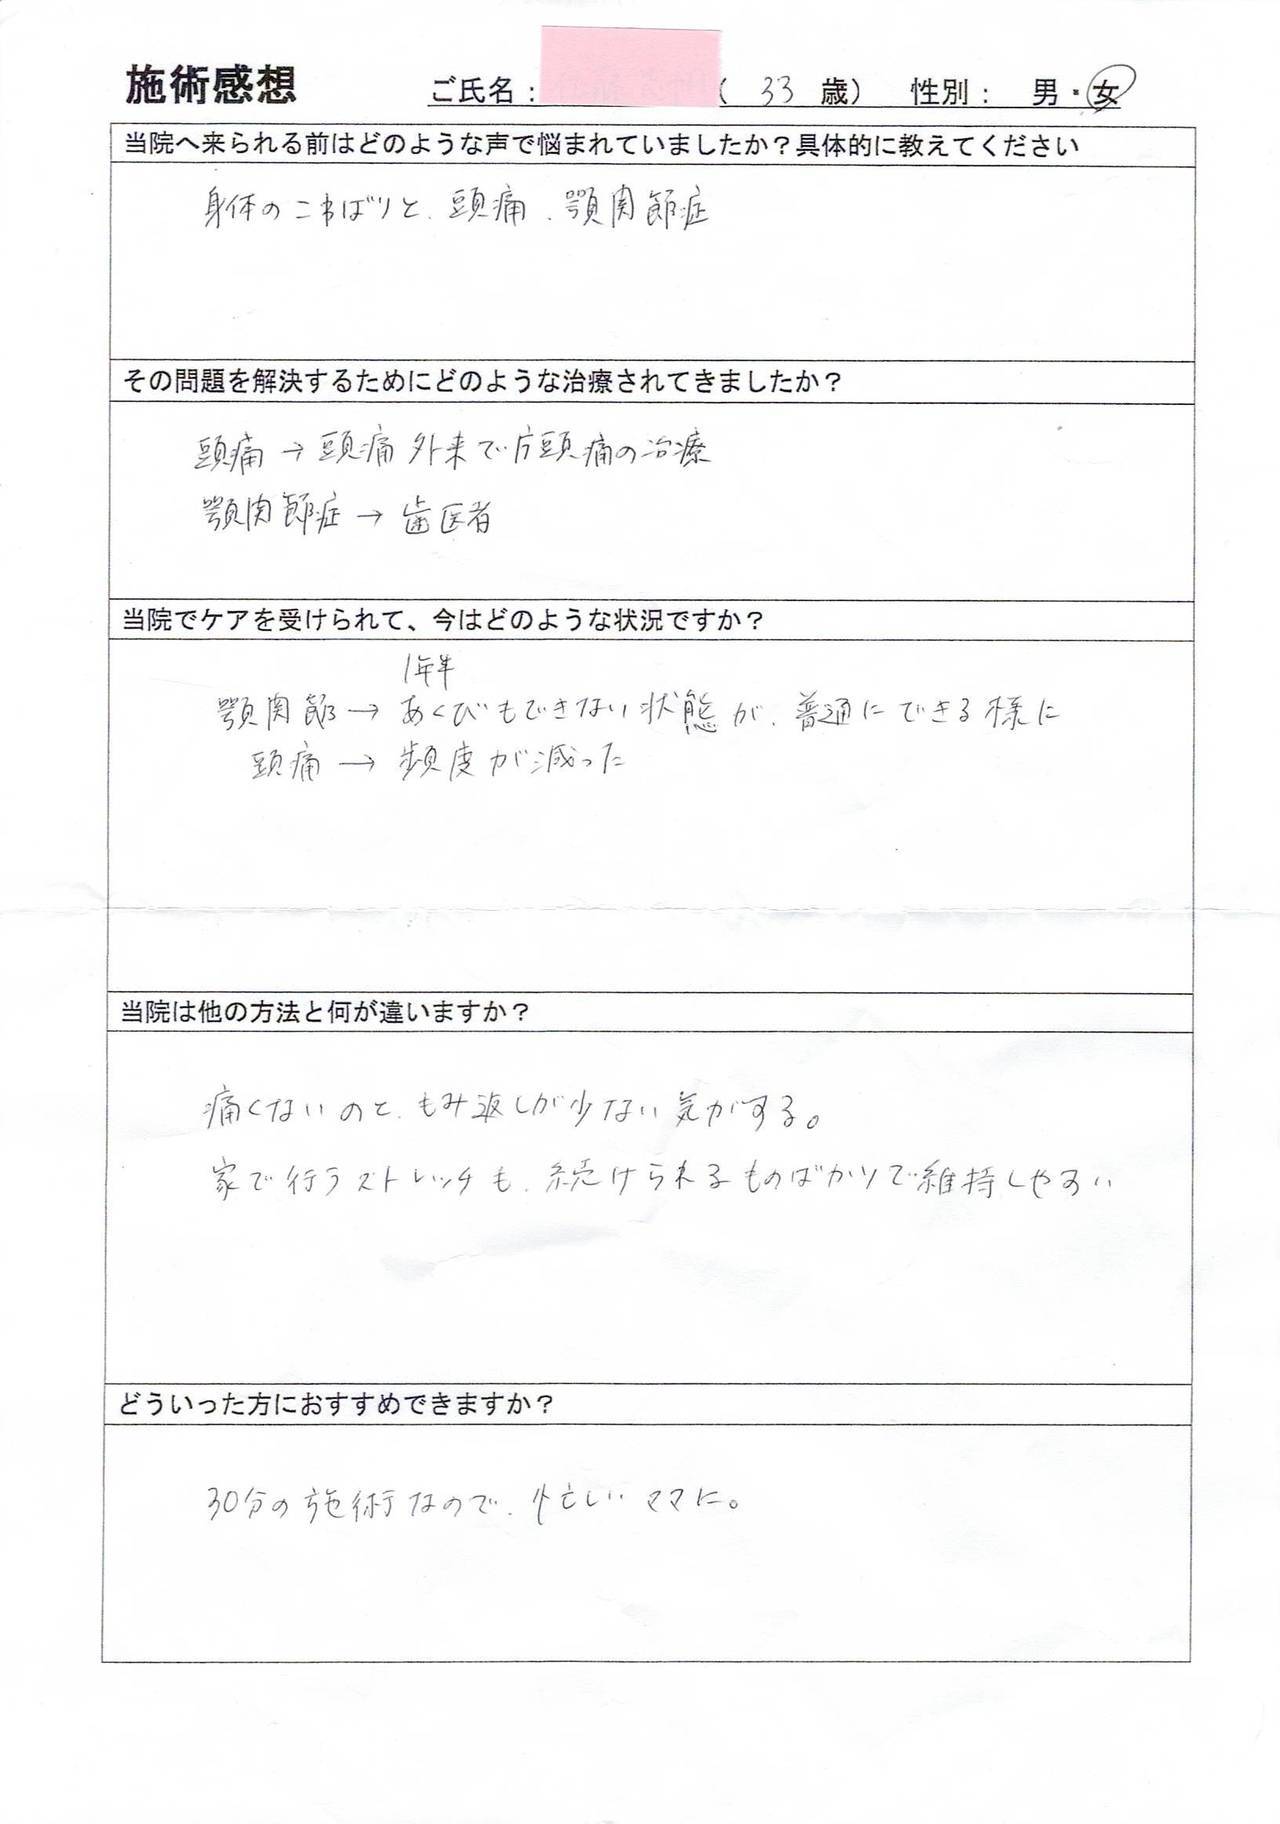 施術感想 ご氏名： （ 33 歳） 性別： 男・女
当院へ来られる前はどのような声で悩まれていましたか？具体的に教えてください
身体のこわばりと、頭痛、顎関節症
その問題を解決するためにどのような治療されてきましたか？
頭痛→頭痛外来で片頭痛の治療
顎関節症→歯医者
当院でケアを受けられて、今はどのような状況ですか？
1年半
顎関節→あくびもできない状態が、普通にできる様に
頭痛→頻度が減った
当院は他の方法と何が違いますか？
痛くないのと、もみ返しが少ない気がする。
家で行うストレッチも、続けられるものばかりで維持しやすい
どういった方におすすめできますか？
30分の施術なので、忙しいママに。